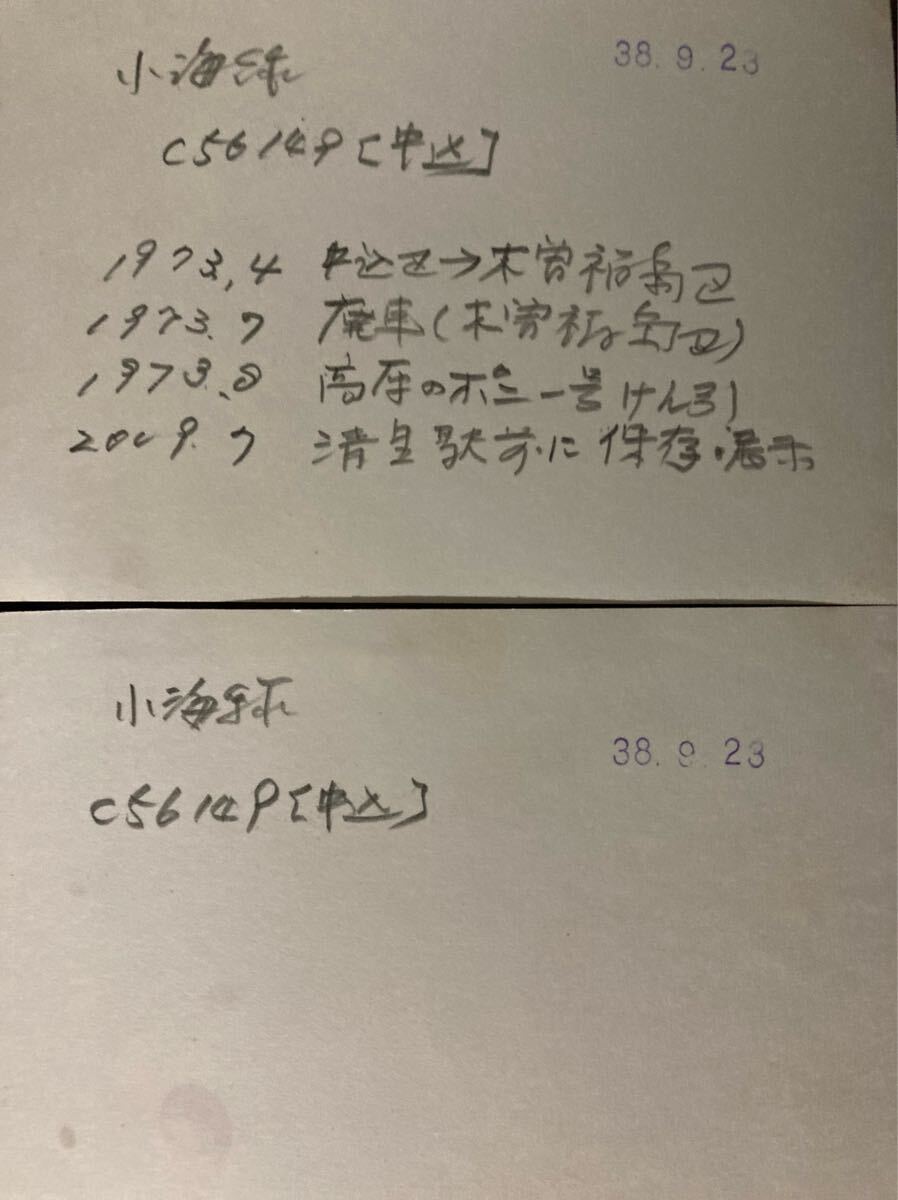 小海線
38.9.23
C56149[中込]
1973.4 中込区→木曽福島区
1973.7 廃車(木曽福島区)
1973.8 高原のポニー号けん引
2009.7 清里駅前に保存・展示
小海線
38.9.23
C56149[中込]